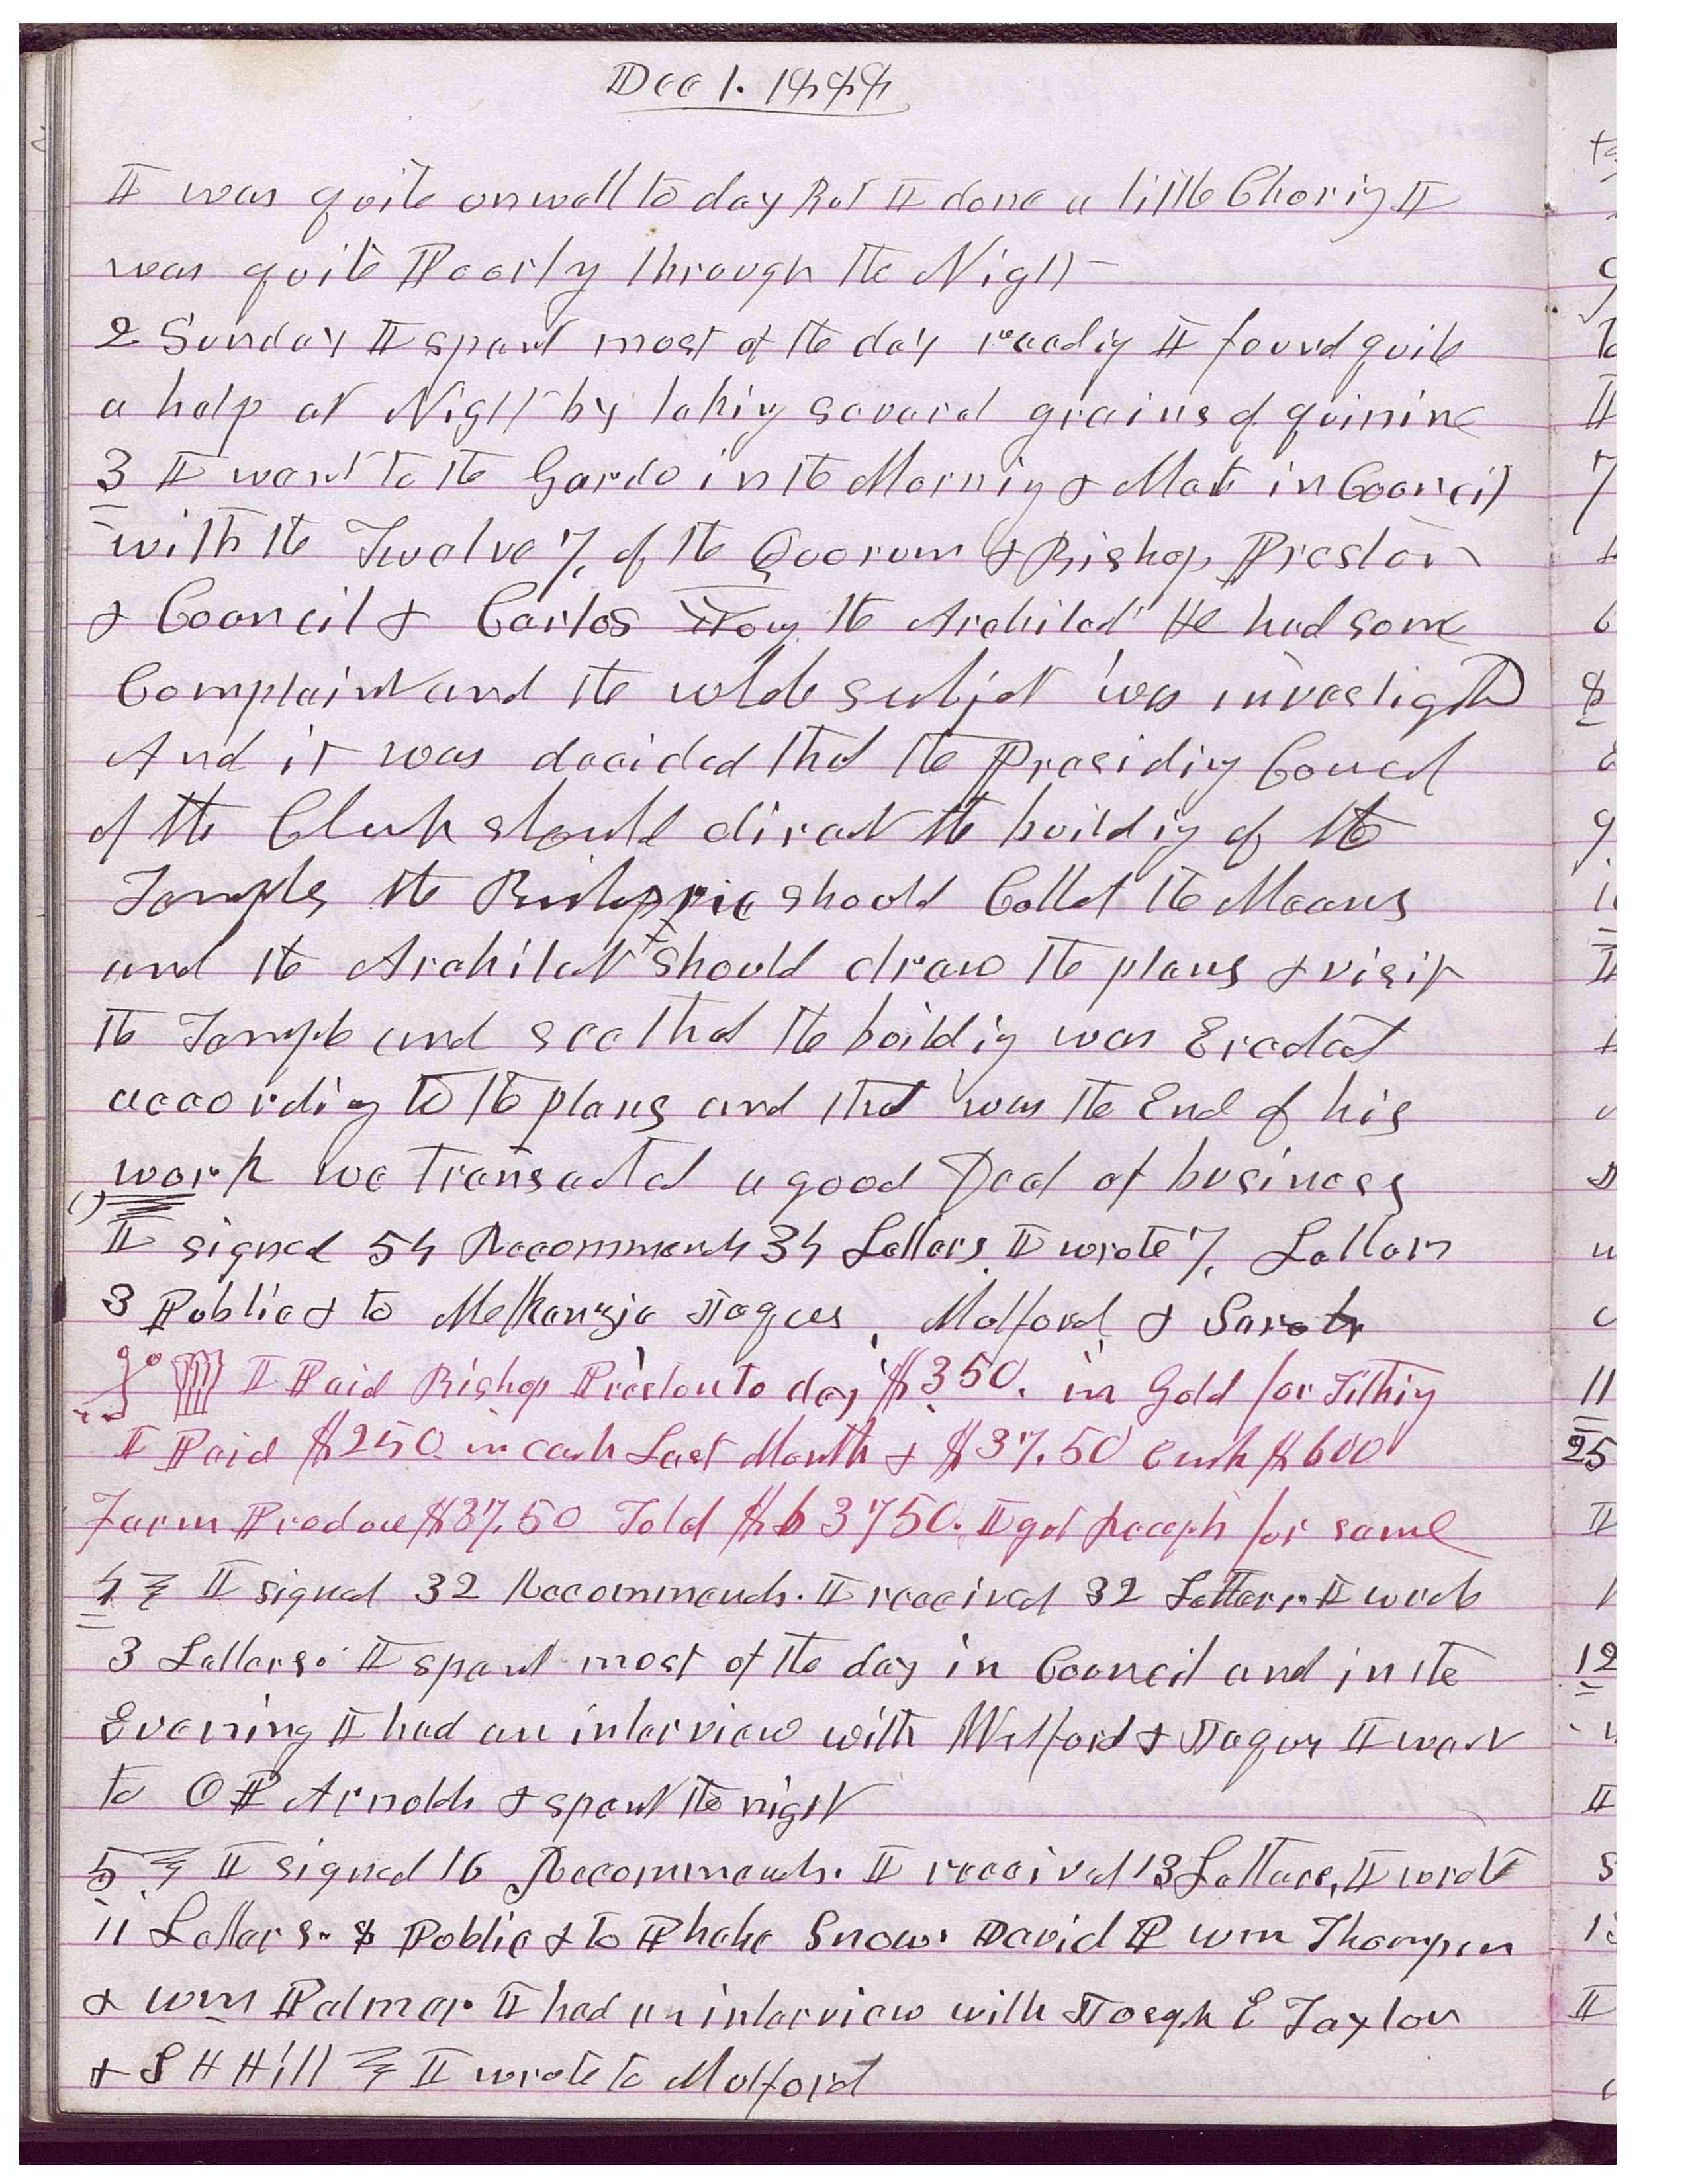 Dec 1. 1888
I was quite unwell to day But I done a little Choring I
was quite Poorly through the Night
2 Sunday I spent most of the day reading I found quite
a help at Night by taking several grains of quinine
3 I went to the Gardo in the Morning & Met in Council
with the Twelve 7, of the Quorum & Bishop Preston
& Council & Carlos Young the Architect He had some
Complaint and the whole subjet was investigated
And it was decided that the Presiding Council
of the Church should direct the building of the
Temples the Bishopric should Collet the Means
and the Architect should draw the plans & visit
the Temple and see that the building was Erected
according to the plans and that was the End of his
work we transacted a good Deal of business
I signed 54 Recommends 34 Letters. I wrote 7, Letters
3 Public & to McKenzie Jaques, Wilford & Sarah
I Paid Bishop Preston to day $350. in Gold for Tithing
I Paid $250 in cash Last Month & $37.50 Cash $600
Farm Produce $37.50 Total $63750. I got Receipt for same
4 I signed 32 Recommends. I received 32 Letters I wrote
3 Letters. I spent most of the day in Council and in the
Evening I had an interview with Wilford & Jaques I went
to O P Arnolds & spent the night
5 I signed 16 Recommends. I received 13 Letters, I wrote
11 Letters. 8 Public & to Phebe Snow. David P Wm Thompson
& Wm Palmer. I had an interview with Joseph E Taylor
& S H Hill I wrote to Wilford